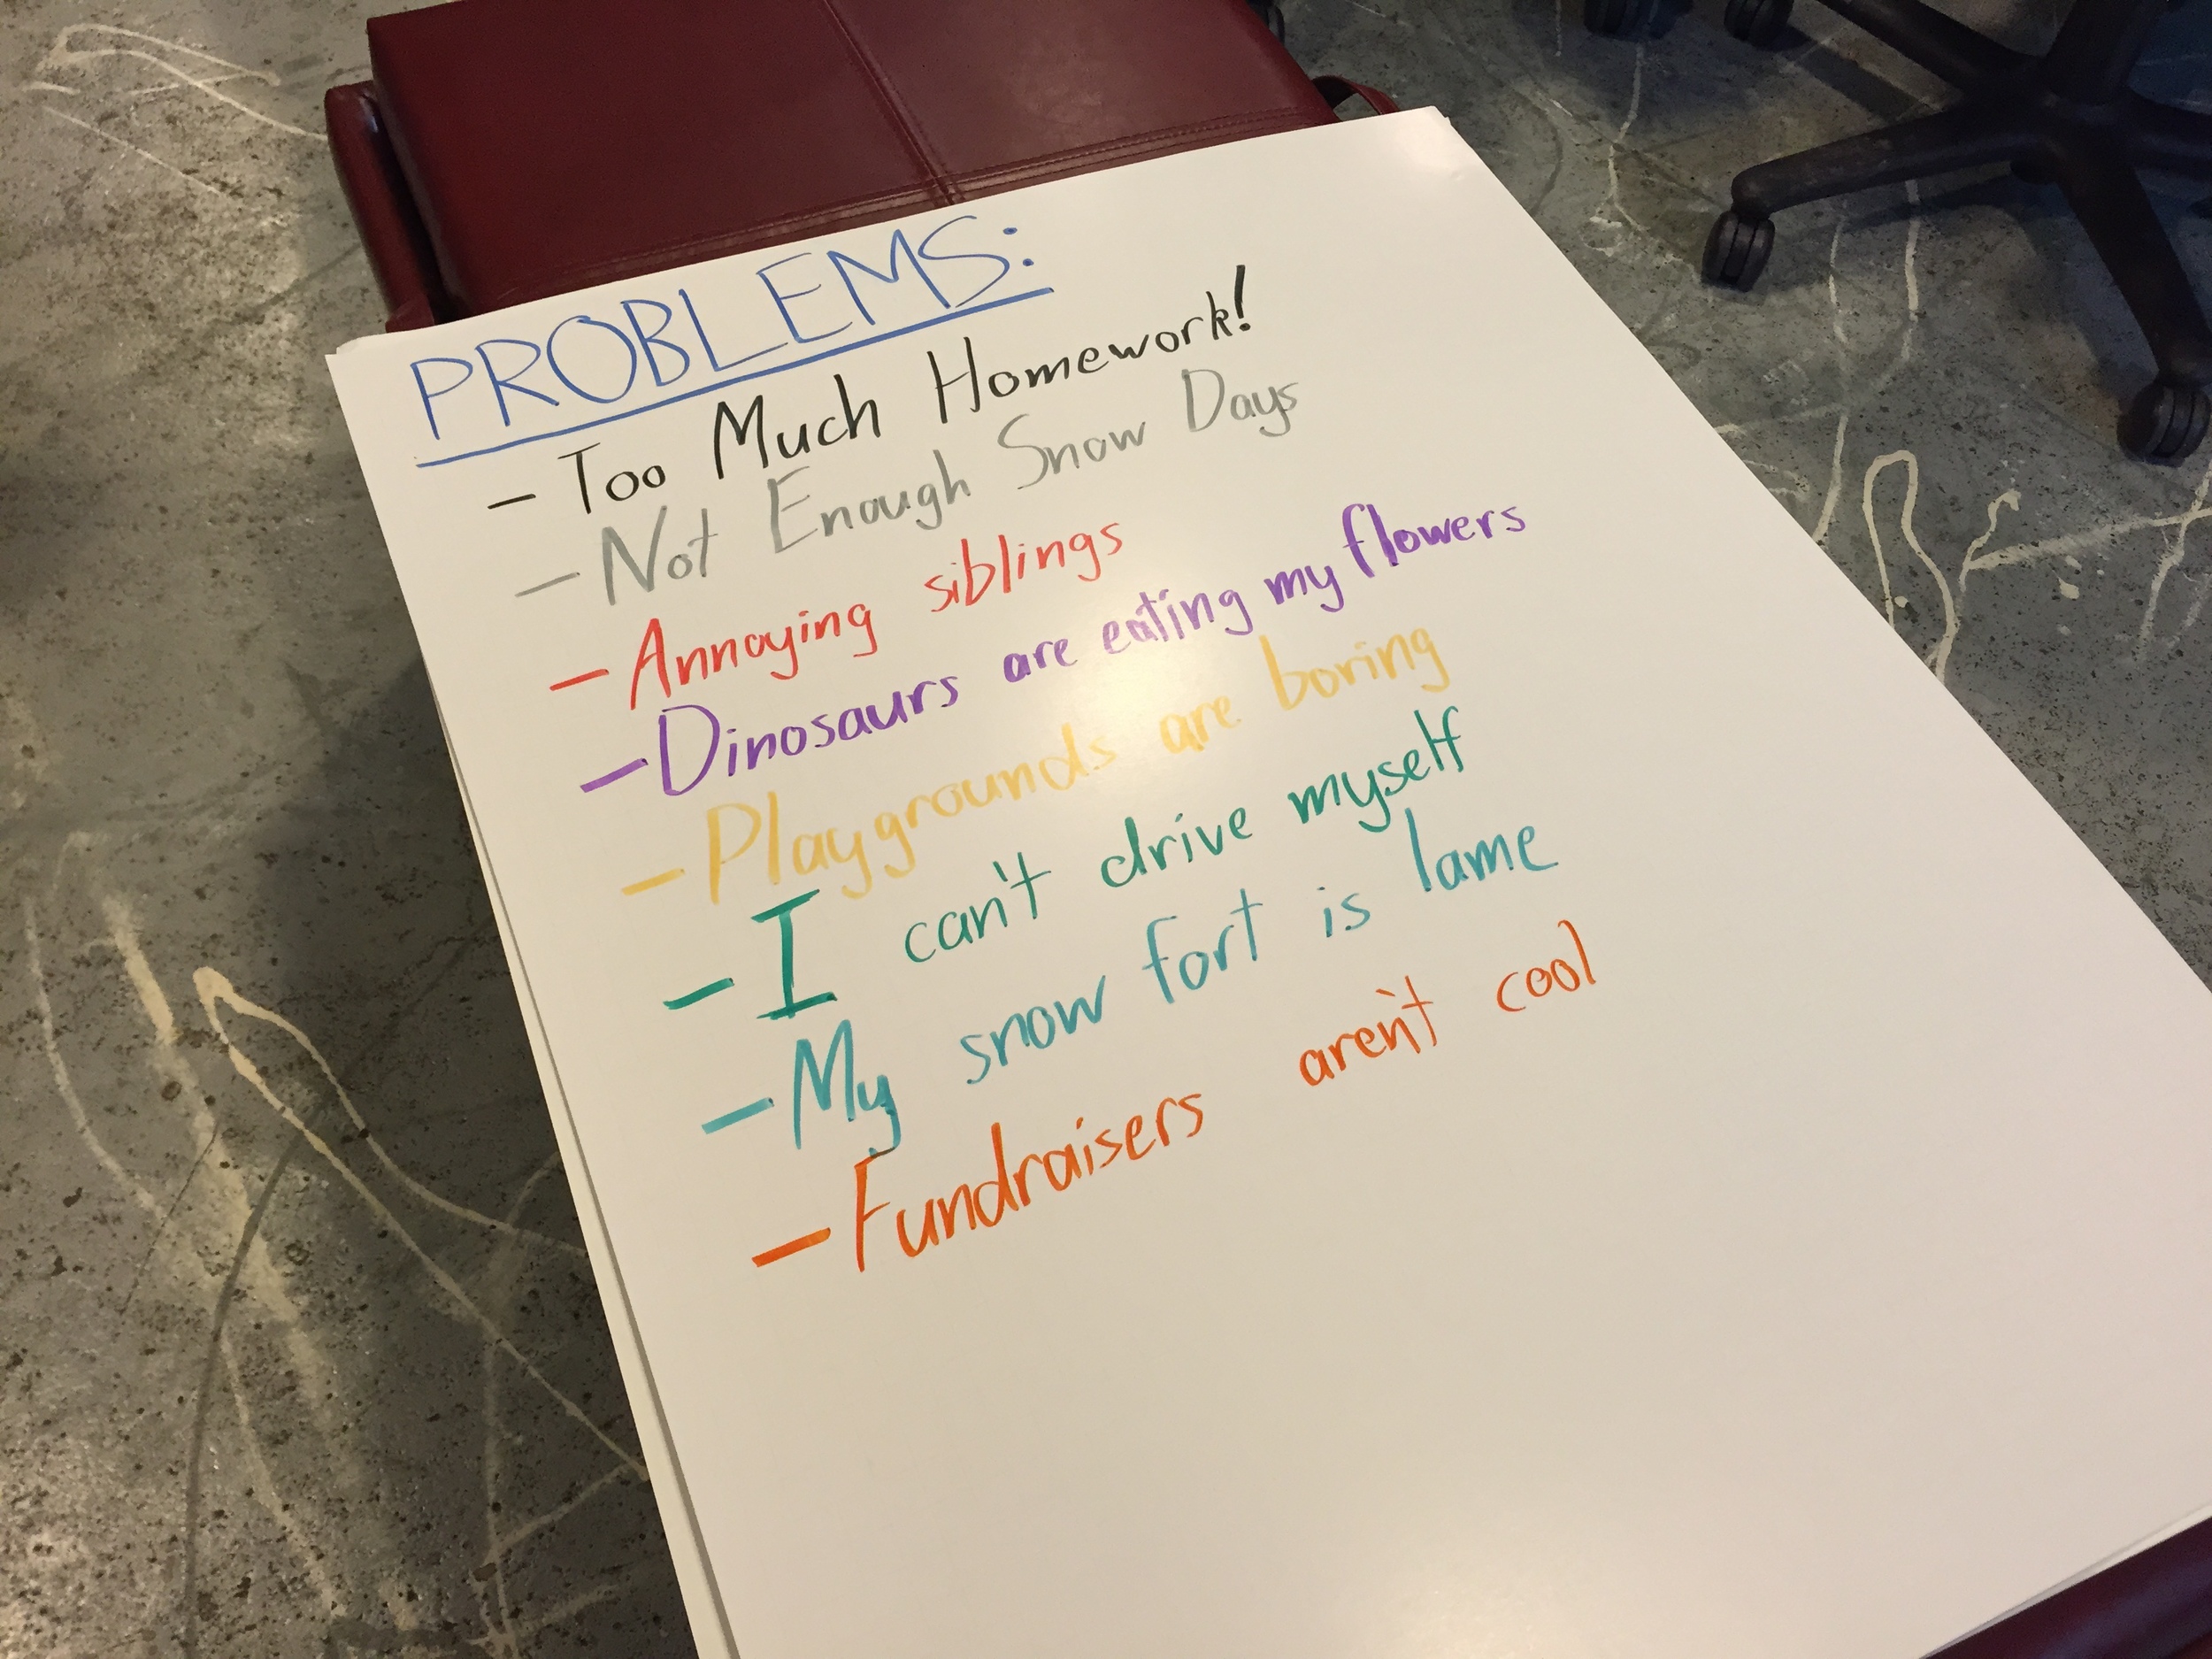 PROBLEMS:
- Too Much Homework!
- Not Enough Snow Days
- Annoying siblings
- Dinosaurs are eating my flowers
- Playgrounds are boring
- I can't drive myself
- My snow fort is lame
- Fundraisers aren't cool